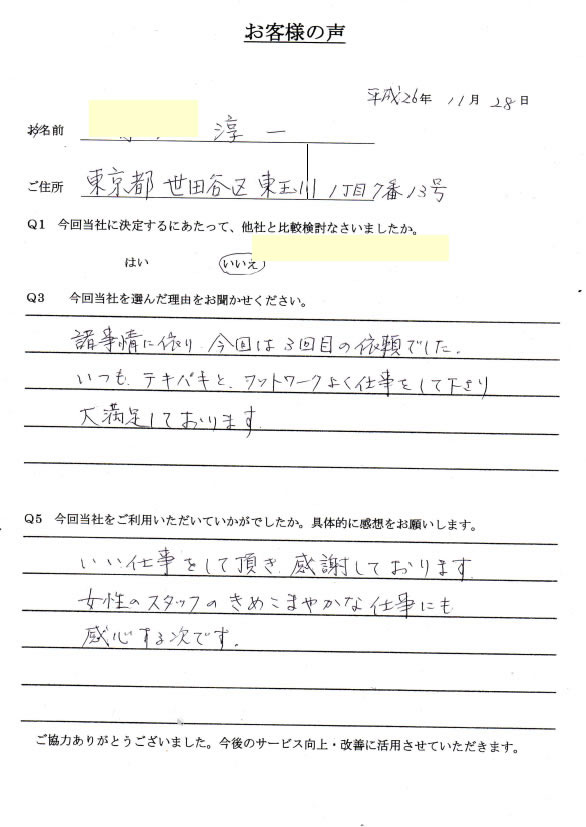 お客様の声
平成26年 11月 28日
お名前 淳一
ご住所 東京都 世田谷区 東玉川 1丁目7番13号
Q1 今回当社に決定するにあたって、他社と比較検討なさいましたか。
はい いいえ
Q3 今回当社を選んだ理由をお聞かせください。
諸事情に依り 今回は3回目の依頼でした。
いつも、テキパキと、フットワークよく仕事をして下さり
大満足しております
Q5 今回当社をご利用いただいていかがでしたか。具体的に感想をお願いします。
いい仕事をして頂き、感謝しております
女性のスタッフのきめこまやかな仕事にも
感心する次です。
ご協力ありがとうございました。今後のサービス向上・改善に活用させていただきます。